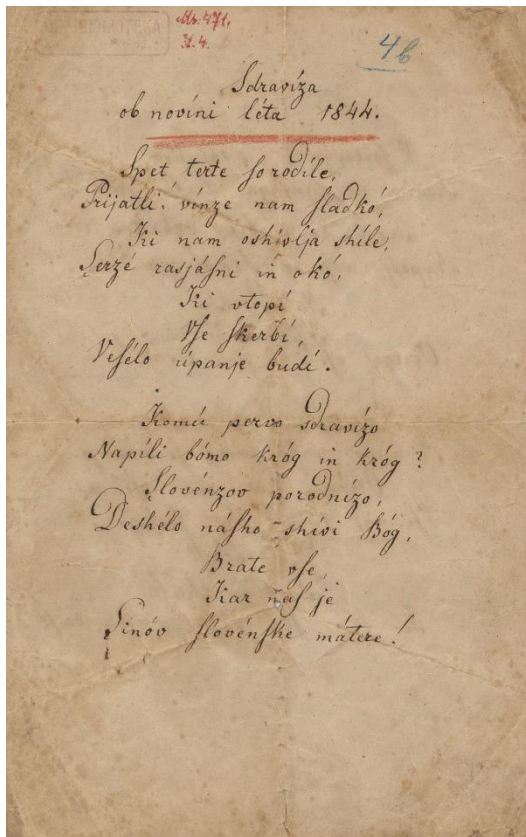 Ms. 471,
N. 4.
4b
Sdravíza
ob novíni léta 1844.
Spet terte so rodíle,
Prijatli! vínze nam sladkó,
Ki nam oshívlja shile,
Serzé rasjásni in okó,
Ki vtopí
Vse skerbí,
Vesélo úpanje budí.
Komú pervo sdravízo
Napíli bómo króg in króg?
Slovénzov porodnízo,
Deshélo násho shívi Bóg,
Brate vse,
Kar nas je
Sinóv slovénske mátere!